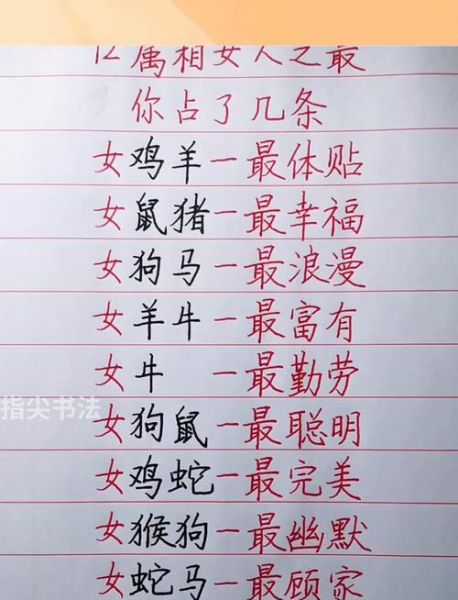 12属相女人之最
你占了几条
女鸡羊一最体贴
女鼠猪一最幸福
女狗马一最浪漫
女羊牛一最富有
女牛 一最勤劳
指尖书法
女狗鼠一最聪明
女鸡蛇一最完美
女猴狗一最幽默
女蛇马一最顾家